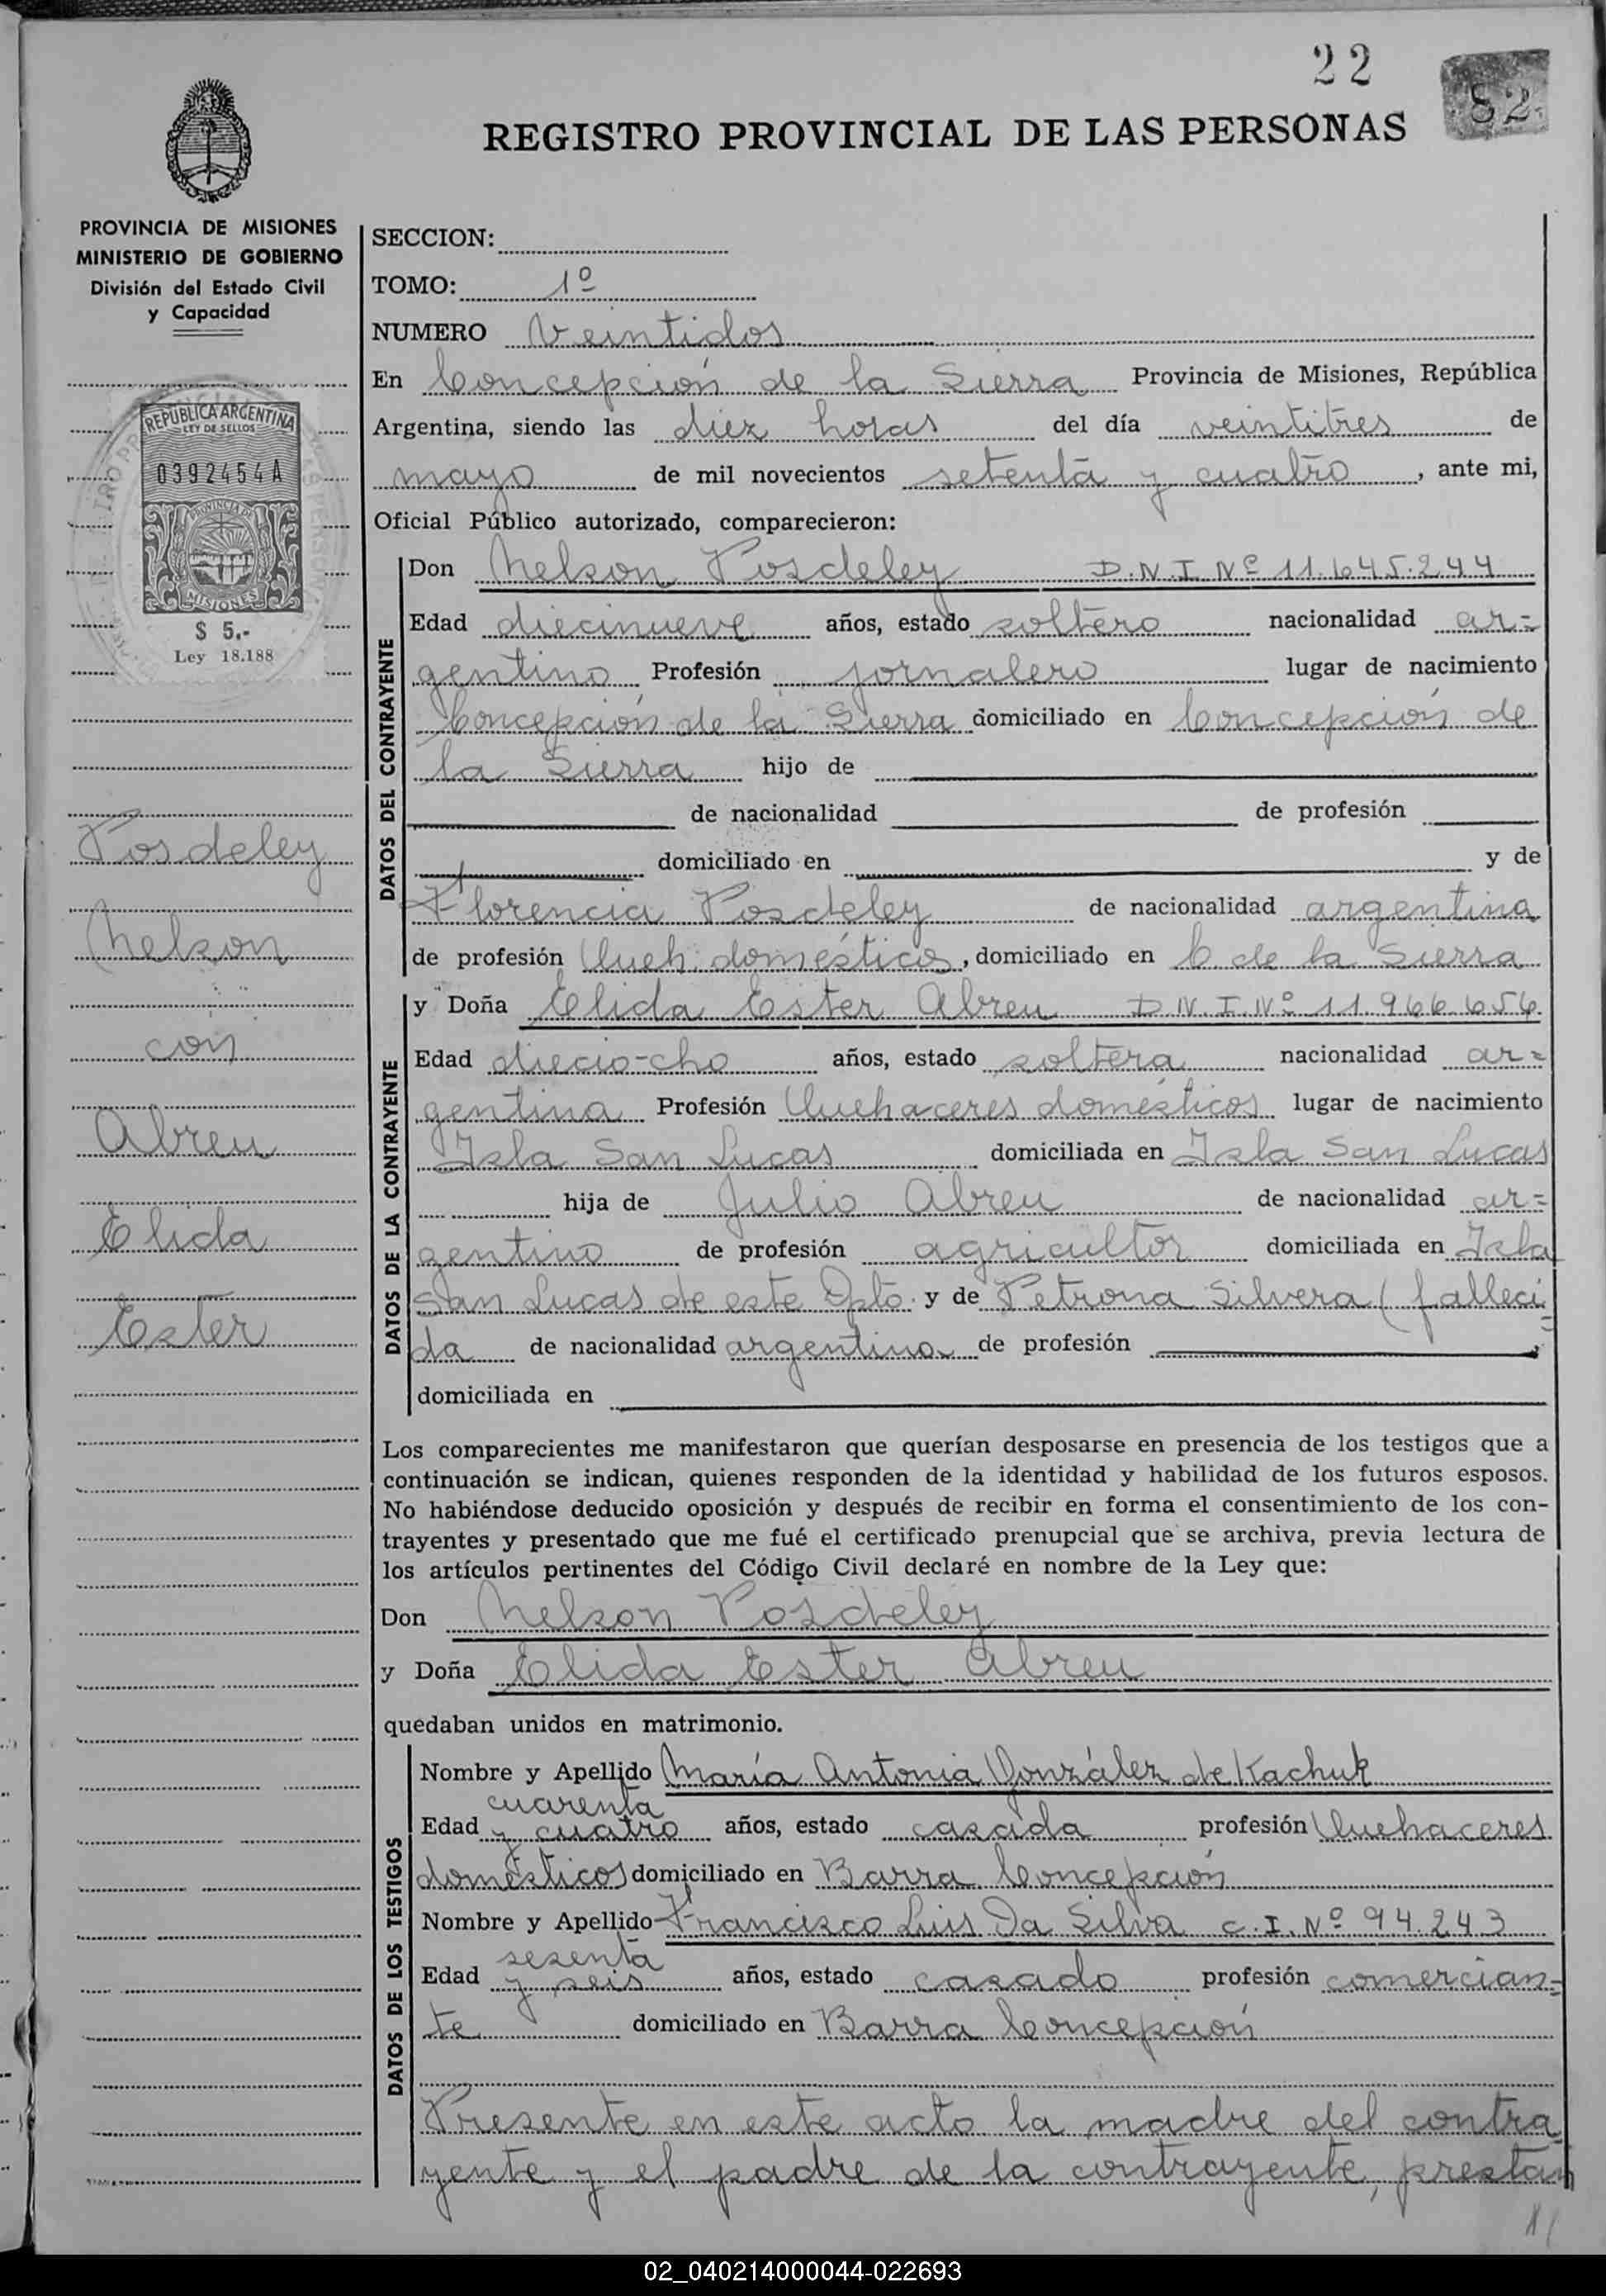 22
82
REGISTRO PROVINCIAL DE LAS PERSONAS
PROVINCIA DE MISIONES
MINISTERIO DE GOBIERNO
División del Estado Civil
y Capacidad
REPUBLICA ARGENTINA
LEY DE SELLOS
0392454A
PROVINCIA DE
MISIONES
$ 5.-
Ley 18.188
Posdeley
Nelson
con
Abreu
Elida
Ester
SECCION:
TOMO: 1º
NUMERO Veintidos
En Concepción de la Sierra Provincia de Misiones, República
Argentina, siendo las diez horas del día veintitres de
mayo de mil novecientos setenta y cuatro, ante mi,
Oficial Público autorizado, comparecieron:
DATOS DEL CONTRAYENTE
Don Nelson Posdeley D.N.I Nº 11.645.244
Edad diecinueve años, estado soltero nacionalidad ar=
gentino Profesión jornalero lugar de nacimiento
Concepción de la Sierra domiciliado en Concepción de
la Sierra hijo de
de nacionalidad de profesión
domiciliado en y de
Florencia Posdeley de nacionalidad argentina
de profesión Queh. domésticos, domiciliado en C. de la Sierra
DATOS DE LA CONTRAYENTE
y Doña Elida Ester Abreu D.N.I.Nº 11.966.656
Edad diecio-cho años, estado soltera nacionalidad ar=
gentina Profesión Quehaceres domésticos lugar de nacimiento
Isla San Lucas domiciliada en Isla San Lucas
hija de Julio Abreu de nacionalidad ar=
gentino de profesión agricultor domiciliada en Isla
San Lucas de este Dpto. y de Petrona Silvera (falleci=
da de nacionalidad argentina de profesión
domiciliada en
Los comparecientes me manifestaron que querían desposarse en presencia de los testigos que a
continuación se indican, quienes responden de la identidad y habilidad de los futuros esposos.
No habiéndose deducido oposición y después de recibir en forma el consentimiento de los con-
trayentes y presentado que me fué el certificado prenupcial que se archiva, previa lectura de
los artículos pertinentes del Código Civil declaré en nombre de la Ley que:
Don Nelson Posdeley
y Doña Elida Ester Abreu
quedaban unidos en matrimonio.
DATOS DE LOS TESTIGOS
Nombre y Apellido María Antonia González de Kachuk
cuarenta
Edad y cuatro años, estado casada profesión Quehaceres
domésticos domiciliado en Barra Concepción
Nombre y Apellido Francisco Luis Da Silva C.I. Nº 94.243
sesenta
Edad y seis años, estado casado profesión comercian=
te domiciliado en Barra Concepción
Presente en este acto la madre del contra
yente y el padre de la contrayente, prestan
02_040214000044-022693